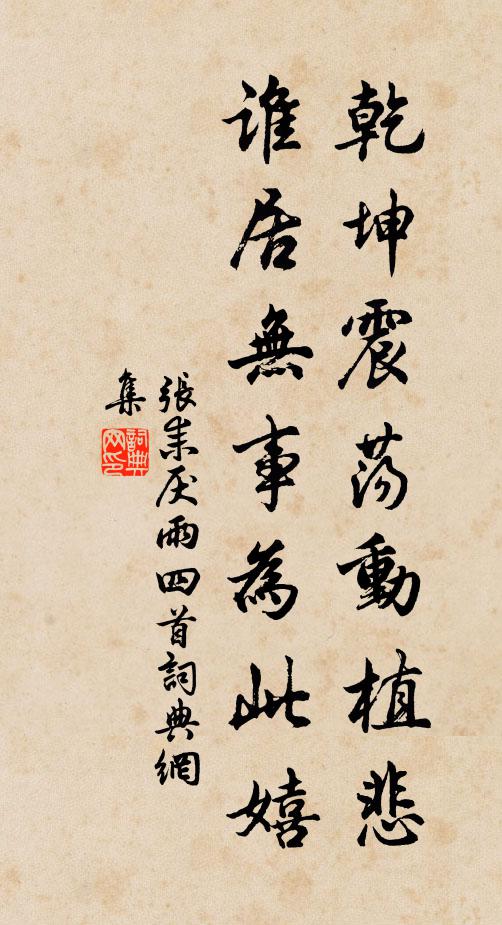 乾坤震荡動植悲
誰居無事為此嬉
張耒厌雨四首詞典網
集
詞典網印